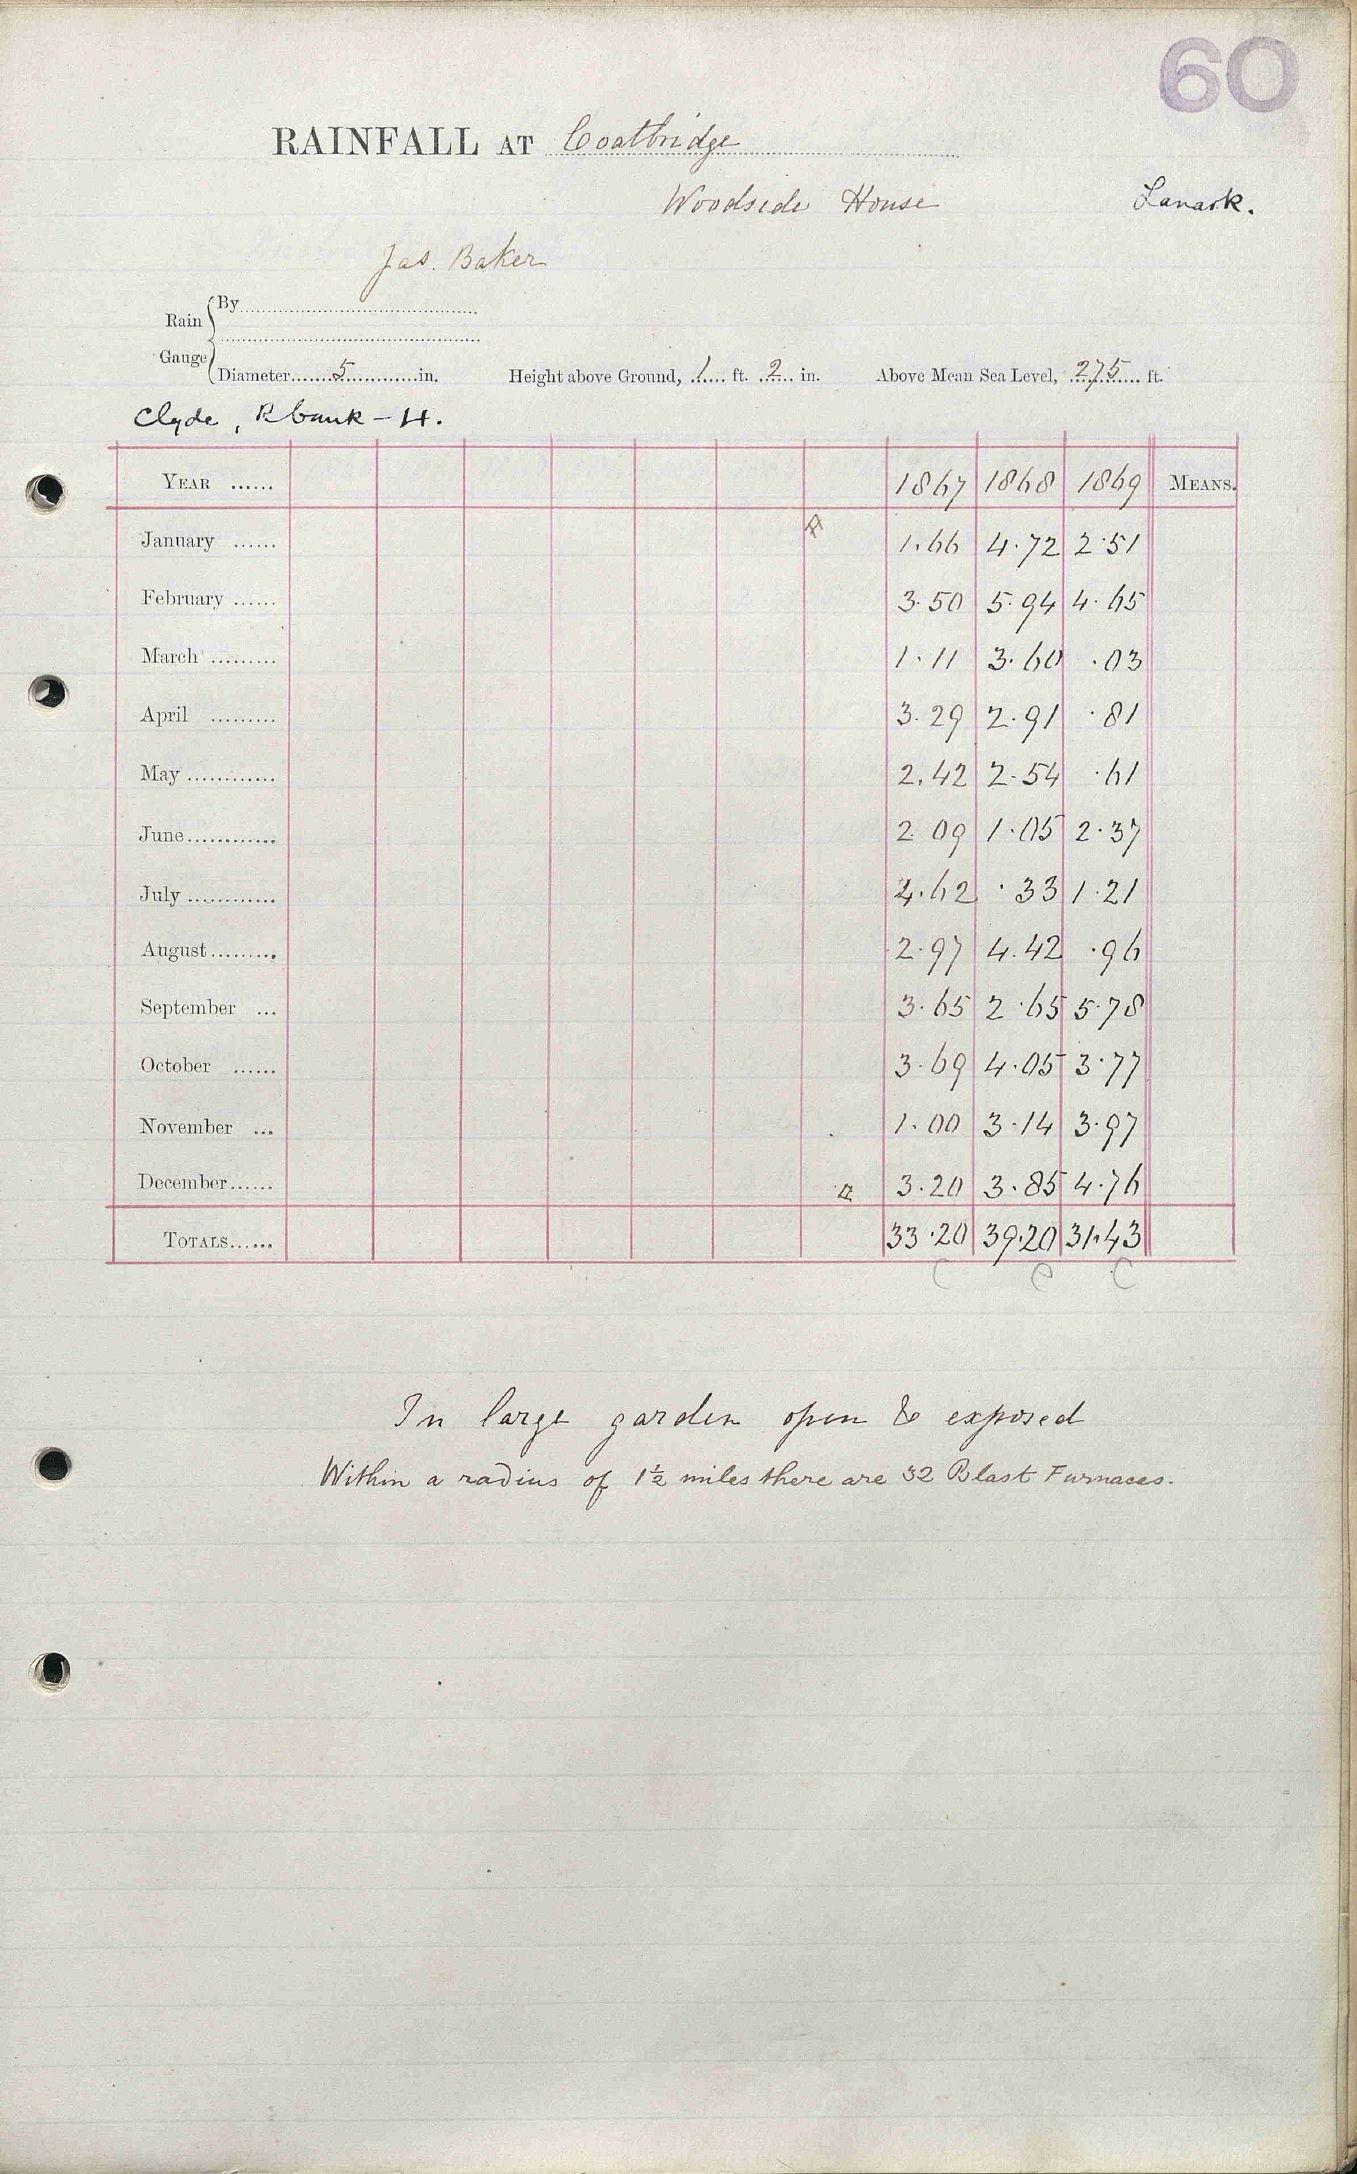 60
RAINFALL AT Coatbridge
Woodside House Lanark.
Jas. Baker
Rain Gauge
By
Diameter 5 in. Height above Ground, 1 ft. 2 in. Above Mean Sea Level, 275 ft.
Clyde, R bank - H.
YEAR ...... 1867 1868 1869 MEANS.
January ...... 1.66 4.72 2.51
February ...... 3.50 5.94 4.65
March ......... 1.11 3.60 .03
April ......... 3.29 2.91 .81
May ............ 2.42 2.54 .61
June ............ 2.09 1.05 2.37
July ............ 4.62 .33 1.21
August ......... 2.97 4.42 .96
September ... 3.65 2.65 5.78
October ...... 3.69 4.05 3.77
November ... 1.00 3.14 3.97
December ...... 3.20 3.85 4.76
TOTALS ...... 33.20 39.20 31.43
C e C
In large garden open & exposed
Within a radius of 1½ miles there are 32 Blast Furnaces.